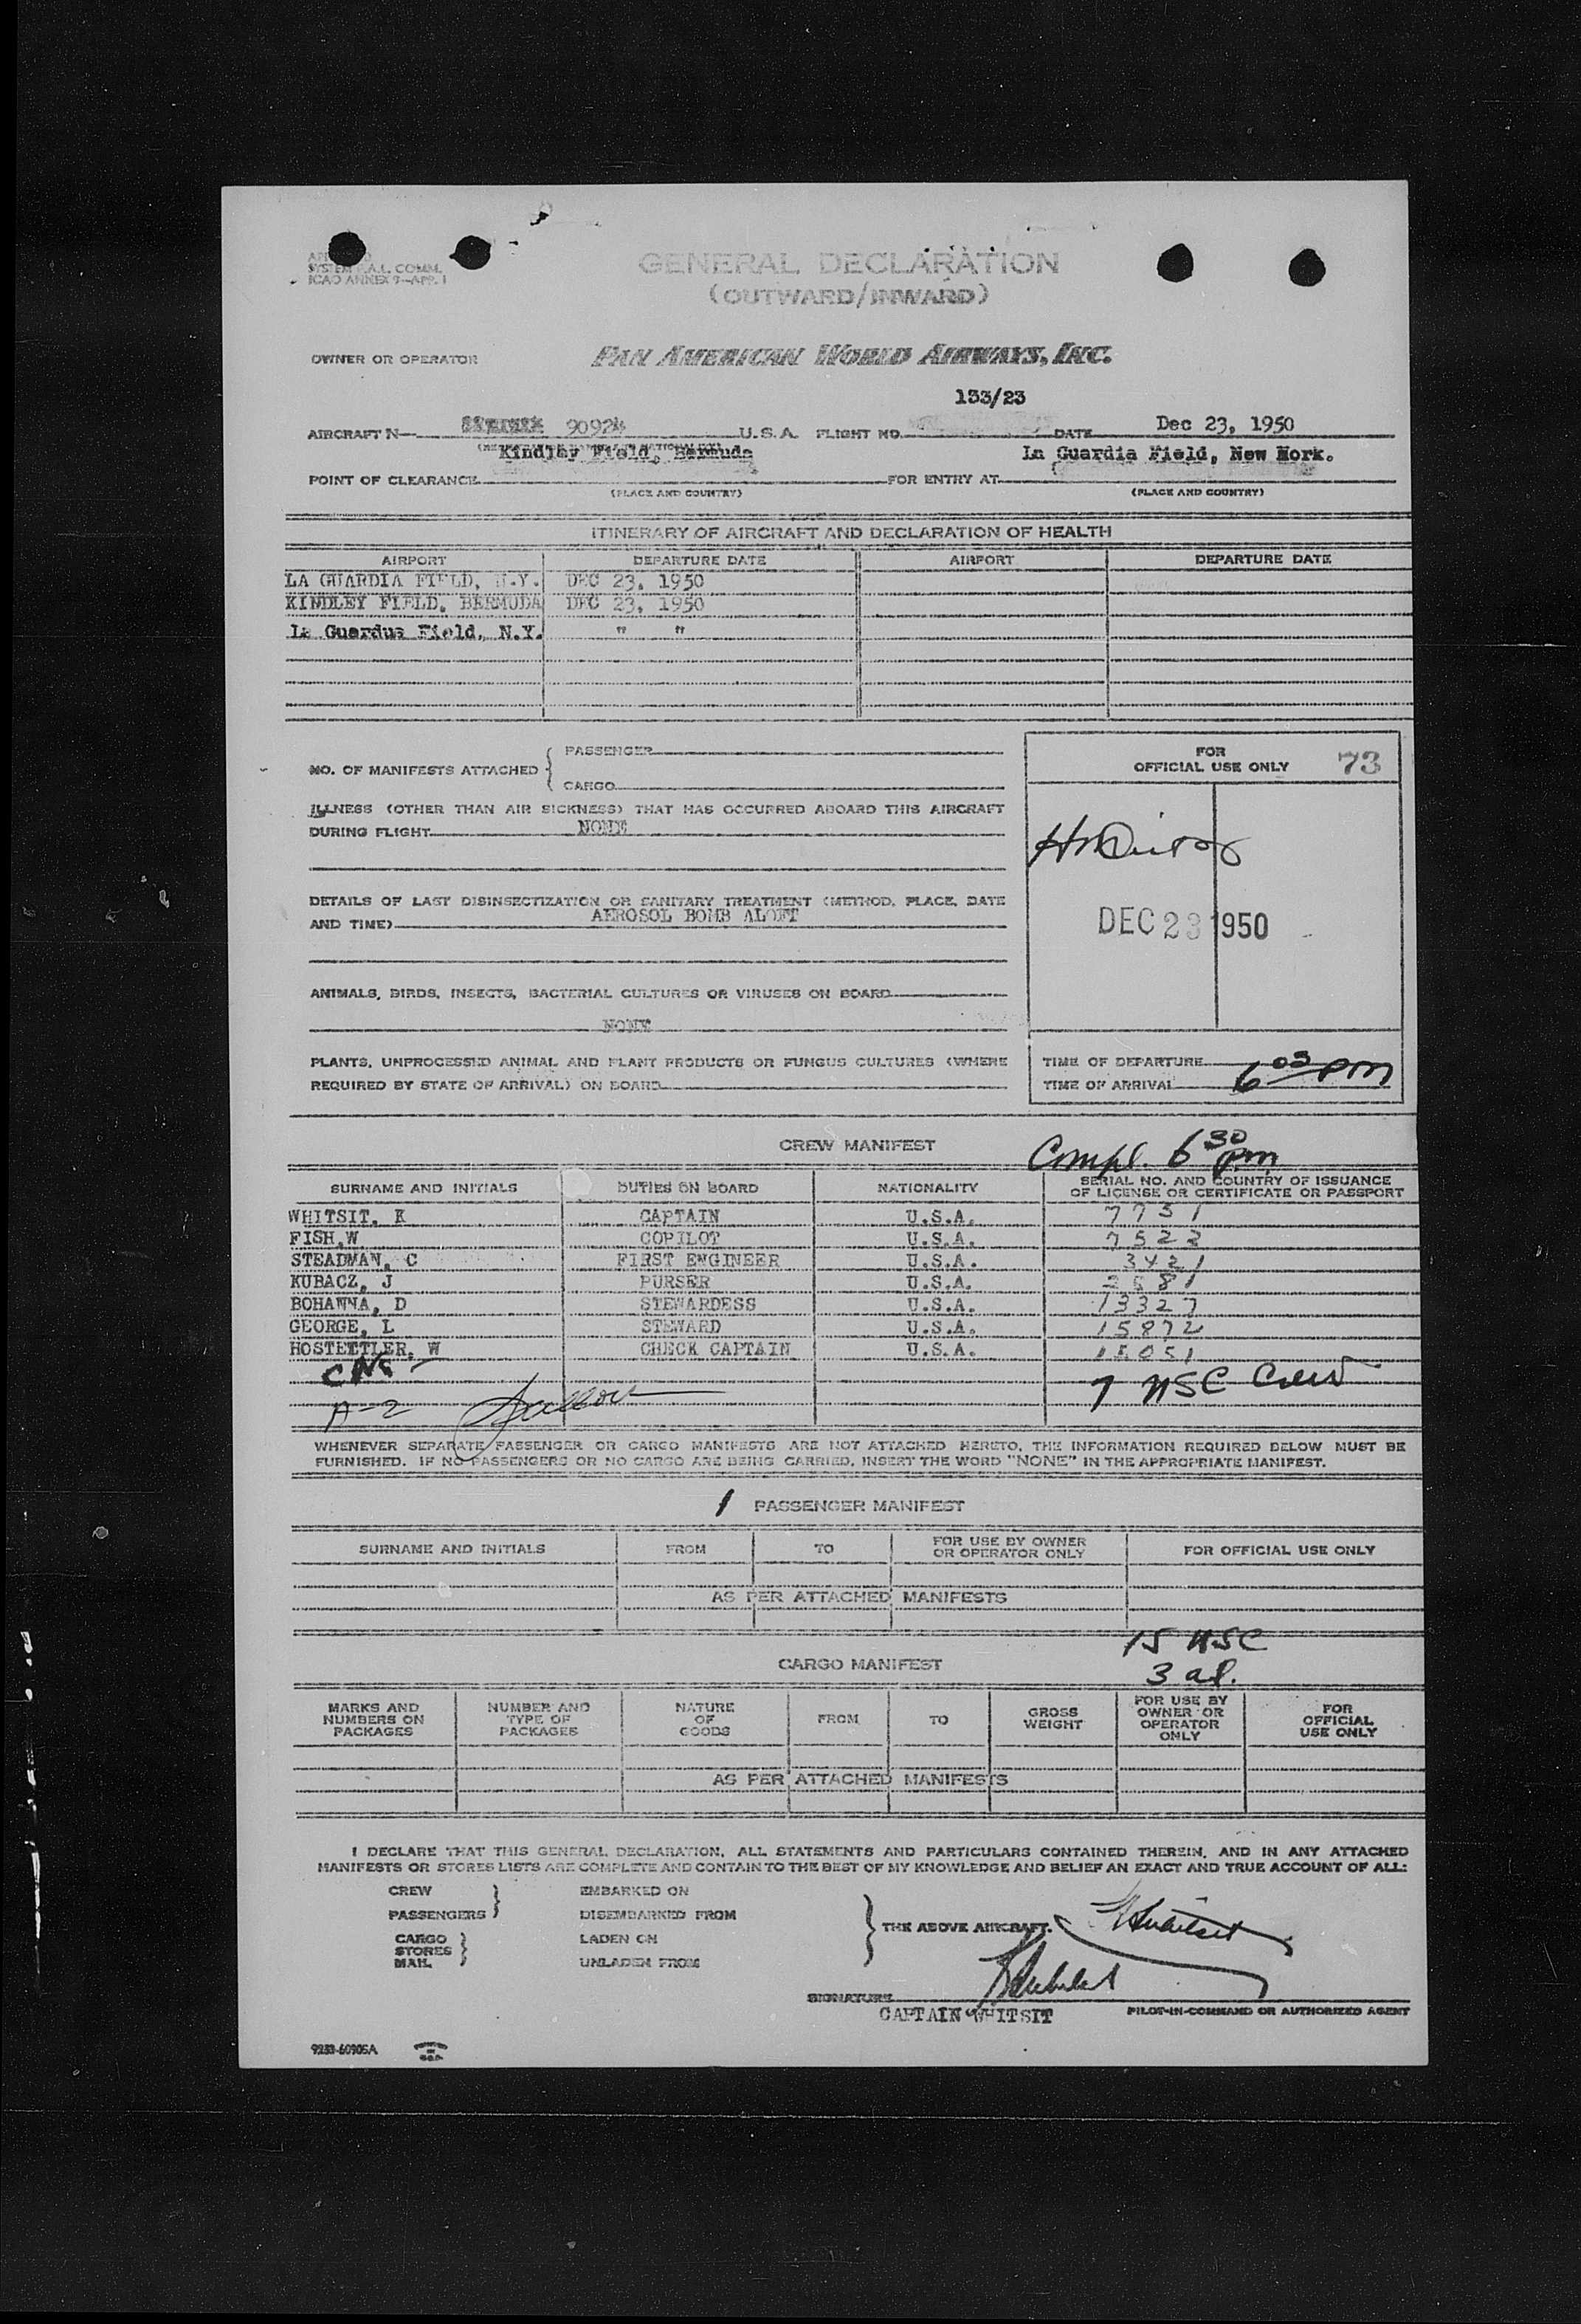 SYSTEM P.A.L. COMM.
ICAO ANNEX 9-APP. 1
GENERAL DECLARATION
(OUTWARD/INWARD)
OWNER OR OPERATOR PAN AMERICAN WORLD AIRWAYS, INC.
133/23
AIRCRAFT N— 90924 U.S.A. FLIGHT NO. DATE Dec 23, 1950
Kindley Field, Bermuda La Guardia Field, New York.
POINT OF CLEARANCE FOR ENTRY AT
(PLACE AND COUNTRY) (PLACE AND COUNTRY)
ITINERARY OF AIRCRAFT AND DECLARATION OF HEALTH
AIRPORT DEPARTURE DATE AIRPORT DEPARTURE DATE
LA GUARDIA FIELD, N.Y. DEC 23, 1950
KINDLEY FIELD, BERMUDA DEC 23, 1950
La Guardua Field, N.Y. " "
NO. OF MANIFESTS ATTACHED { PASSENGER
CARGO
ILLNESS (OTHER THAN AIR SICKNESS) THAT HAS OCCURRED ABOARD THIS AIRCRAFT
DURING FLIGHT NONE
DETAILS OF LAST DISINSECTIZATION OR SANITARY TREATMENT (METHOD, PLACE, DATE
AND TIME) AEROSOL BOMB ALOFT
ANIMALS, BIRDS, INSECTS, BACTERIAL CULTURES OR VIRUSES ON BOARD
NONE
PLANTS, UNPROCESSED ANIMAL AND PLANT PRODUCTS OR FUNGUS CULTURES (WHERE
REQUIRED BY STATE OF ARRIVAL) ON BOARD
FOR
OFFICIAL USE ONLY 73
DEC 23 1950
TIME OF DEPARTURE
TIME OF ARRIVAL 6 05 PM
CREW MANIFEST Compl. 6 30 pm
SURNAME AND INITIALS DUTIES ON BOARD NATIONALITY SERIAL NO. AND COUNTRY OF ISSUANCE
OF LICENSE OR CERTIFICATE OR PASSPORT
WHITSIT, K CAPTAIN U.S.A. 7751
FISH, W COPILOT U.S.A. 7522
STEADMAN, C FIRST ENGINEER U.S.A. 3421
KUBACZ, J PURSER U.S.A. 2581
BOHANNA, D STEWARDESS U.S.A. 13327
GEORGE, L STEWARD U.S.A. 15872
HOSTETTLER, W CHECK CAPTAIN U.S.A. 15051
7 USC Crew
A-2
WHENEVER SEPARATE PASSENGER OR CARGO MANIFESTS ARE NOT ATTACHED HERETO, THE INFORMATION REQUIRED BELOW MUST BE
FURNISHED. IF NO PASSENGERS OR NO CARGO ARE BEING CARRIED, INSERT THE WORD "NONE" IN THE APPROPRIATE MANIFEST.
1 PASSENGER MANIFEST
SURNAME AND INITIALS FROM TO FOR USE BY OWNER
OR OPERATOR ONLY FOR OFFICIAL USE ONLY
AS PER ATTACHED MANIFESTS
15 USC
CARGO MANIFEST 3 al.
MARKS AND
NUMBERS ON
PACKAGES NUMBER AND
TYPE OF
PACKAGES NATURE
OF
GOODS FROM TO GROSS
WEIGHT FOR USE BY
OWNER OR
OPERATOR
ONLY FOR
OFFICIAL
USE ONLY
AS PER ATTACHED MANIFESTS
I DECLARE THAT THIS GENERAL DECLARATION, ALL STATEMENTS AND PARTICULARS CONTAINED THEREIN, AND IN ANY ATTACHED
MANIFESTS OR STORES LISTS ARE COMPLETE AND CONTAIN TO THE BEST OF MY KNOWLEDGE AND BELIEF AN EXACT AND TRUE ACCOUNT OF ALL:
CREW EMBARKED ON
PASSENGERS DISEMBARKED FROM
THE ABOVE AIRCRAFT. K Whitsit
CARGO LADEN ON
STORES
MAIL UNLADEN FROM
SIGNATURE
CAPTAIN WHITSIT PILOT-IN-COMMAND OR AUTHORIZED AGENT
9253-60905A